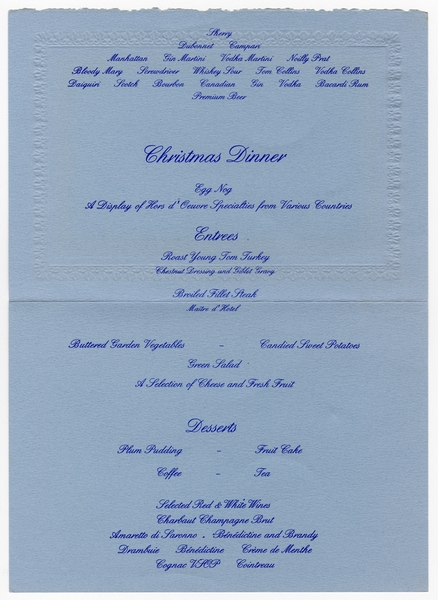 Sherry
Dubonnet Campari
Manhattan Gin Martini Vodka Martini Noilly Prat
Bloody Mary Screwdriver Whiskey Sour Tom Collins Vodka Collins
Daiquiri Scotch Bourbon Canadian Gin Vodka Bacardi Rum
Premium Beer
Christmas Dinner
Egg Nog
A Display of Hors d'Oeuvre Specialties from Various Countries
Entrees
Roast Young Tom Turkey
Chestnut Dressing and Giblet Gravy
Broiled Fillet Steak
Maitre d'Hotel
Buttered Garden Vegetables - Candied Sweet Potatoes
Green Salad
A Selection of Cheese and Fresh Fruit
Desserts
Plum Pudding - Fruit Cake
Coffee - Tea
Selected Red & White Wines
Charbaut Champagne Brut
Amaretto di Saronno . Bénédictine and Brandy
Drambuie Bénédictine Crème de Menthe
Cognac VSOP Cointreau